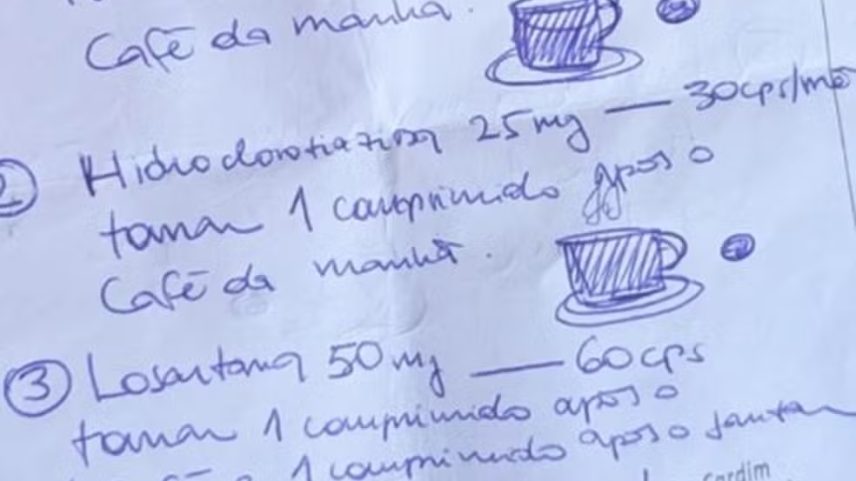 Café da manhã.
② Hidroclorotiazida 25mg — 30cps/mê
tomar 1 comprimido após o
Café da manhã.
③ Losartana 50mg — 60cps
tomar 1 comprimido após o
1 comprimido após o jantar
cardim